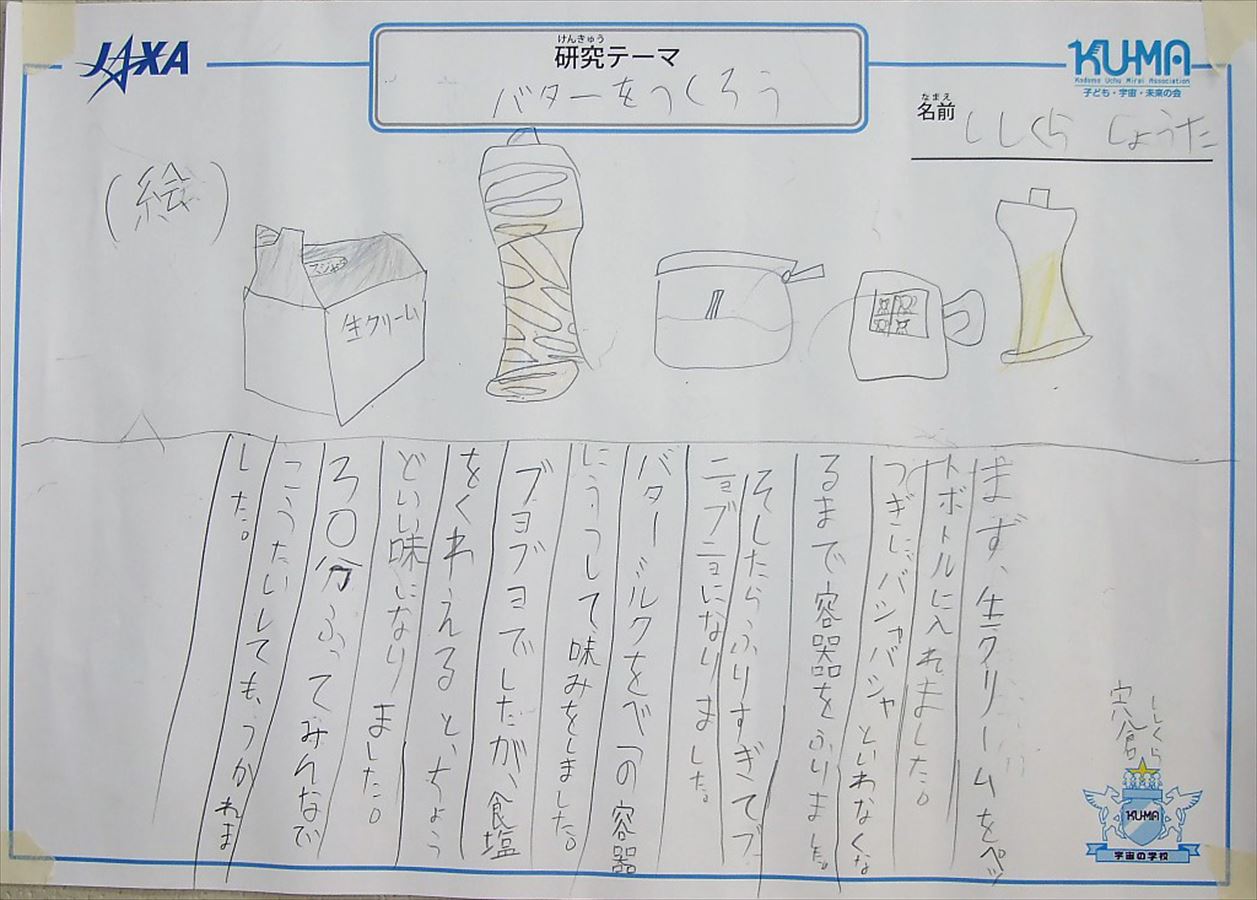 JAXA
けんきゅう
研究テーマ
バターをつくろう
KU-MA
Kodomo Uchu Mirai Association
子ども・宇宙・未来の会
なまえ
名前
ししくら しょうた
(絵)
生クリーム
まず、生クリームをペッ
トボトルに入れました。
つぎに、バシャバシャといわなくな
るまで容器をふりました。
そしたらふりすぎてブ
ニョブニョになりました。
バターミルクをべつの容器
にうつして、味みをしました。
ブヨブヨでしたが、食塩
をくわえると、ちょう
どいい味になりました。
30分ふってみんなで
こうたいしても、つかれま
した。
ししくら
宍倉
KU-MA
宇宙の学校